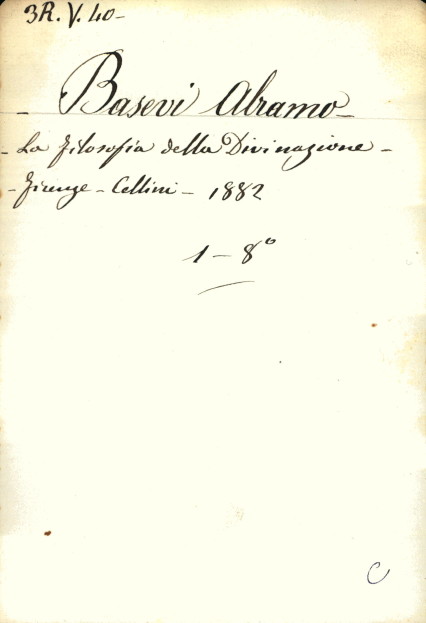 3R. V. 40-
- Basevi Abramo -
- La Filosofia della Divinazione -
- Firenze - Cellini - 1882
1 - 8°
C